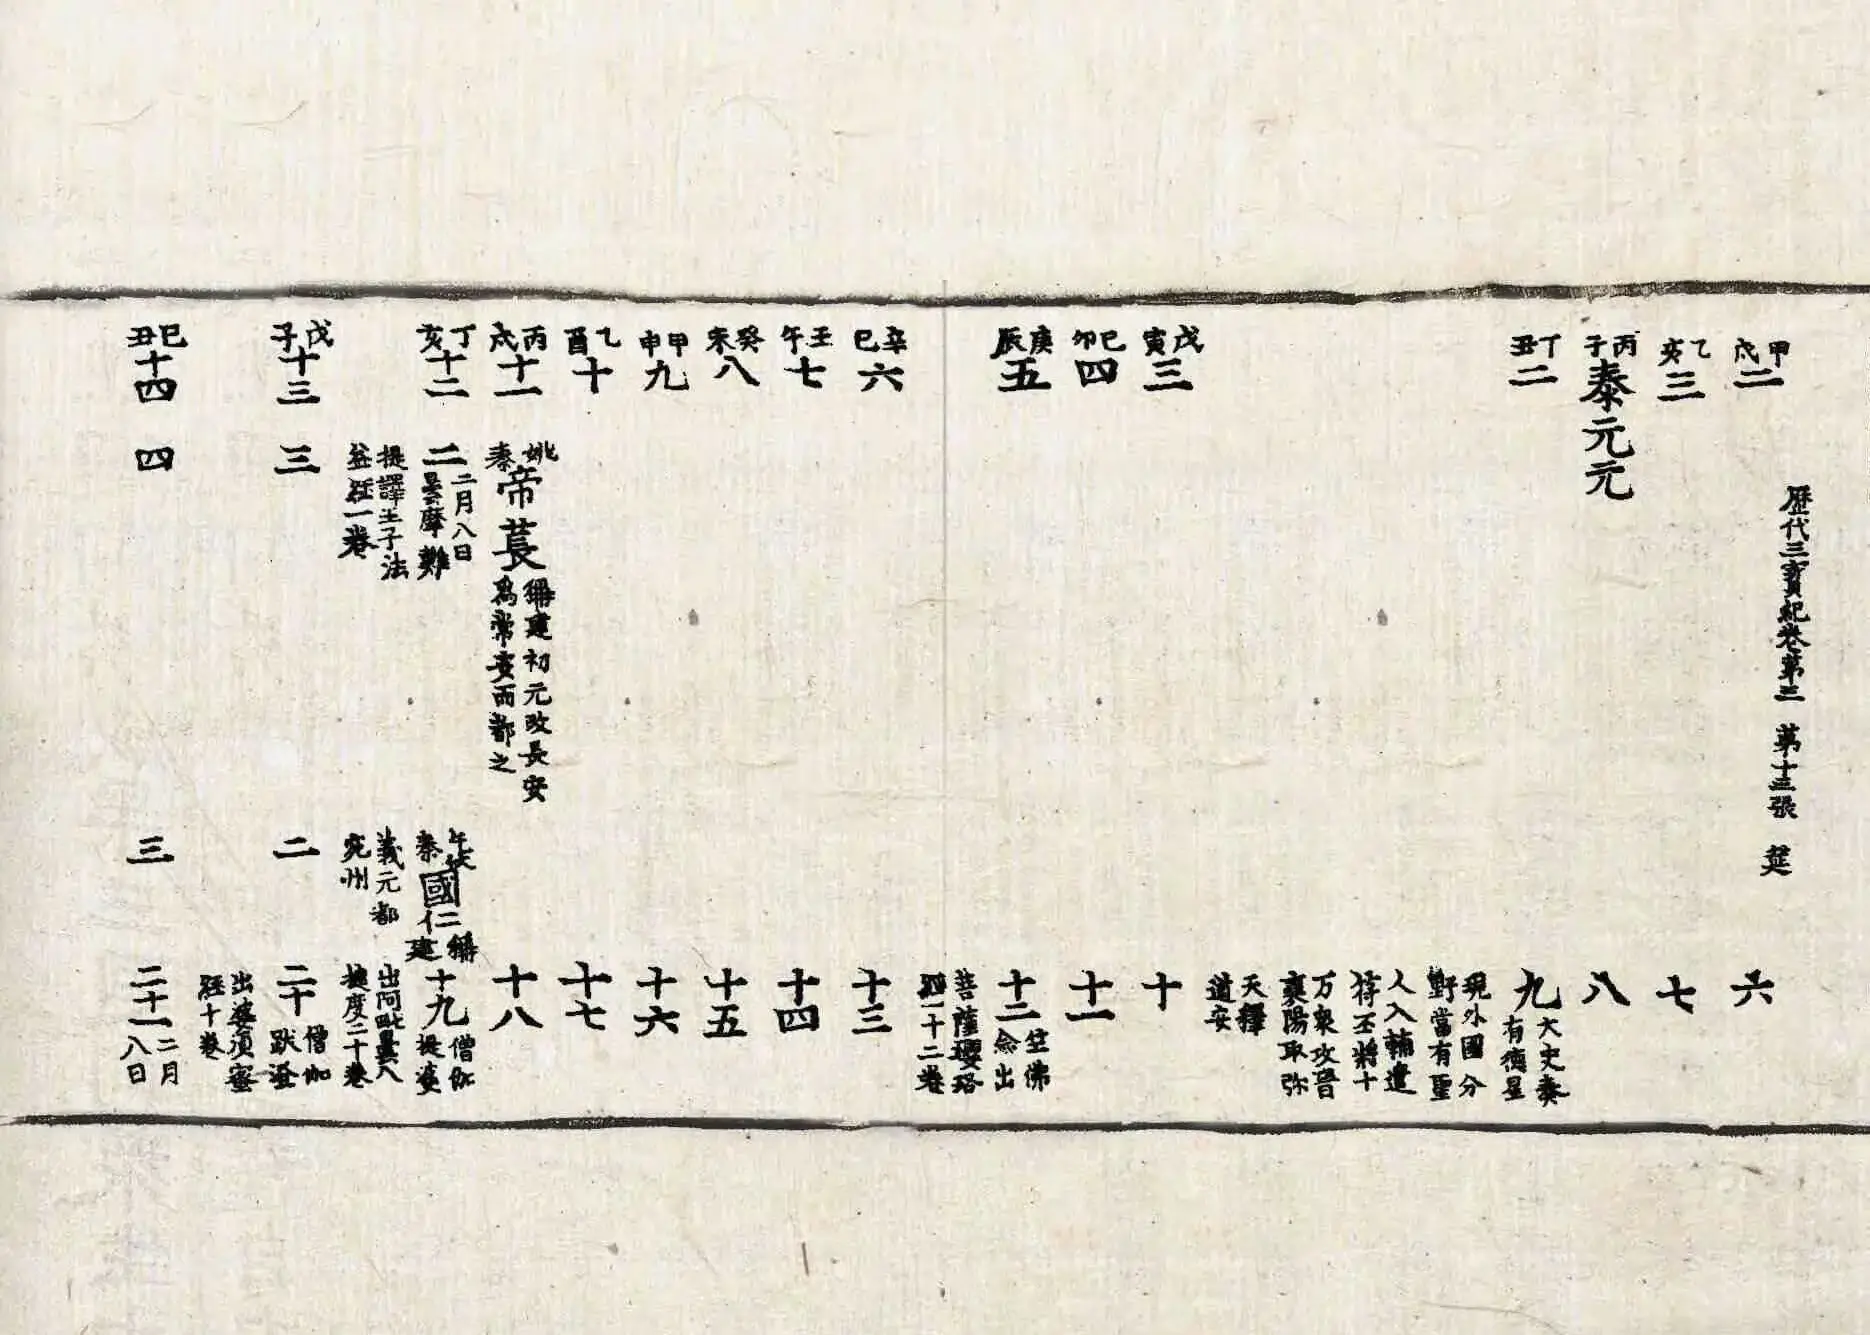 歷代三寶紀卷第三　第十三張　㲋
甲戌二　六
乙亥三　七
丙子泰元元　八
丁丑二　九大史奏有德星
現外國分野當有聖
人入輔遣苻丕將十
万衆攻晉襄陽取弥
天釋道安
戊寅三　十
己卯四　十一
庚辰五　十二竺佛念出
菩薩瓔珞經一十二卷
辛巳六　十三
壬午七　十四
癸未八　十五
甲申九　十六
乙酉十　十七
丙戌十一　姚秦帝萇稱建初元改長安爲常安而都之　十八
丁亥十二　二二月八日曇摩難　乞伏秦國仁稱建　十九僧伽提婆
提譯王子法益經一卷　義元都兖州　出阿毗曇八揵度二十卷
戊子十三　三　二　二十僧伽跋澄
出婆須蜜經十卷
己丑十四　四　三　二十一二月八日